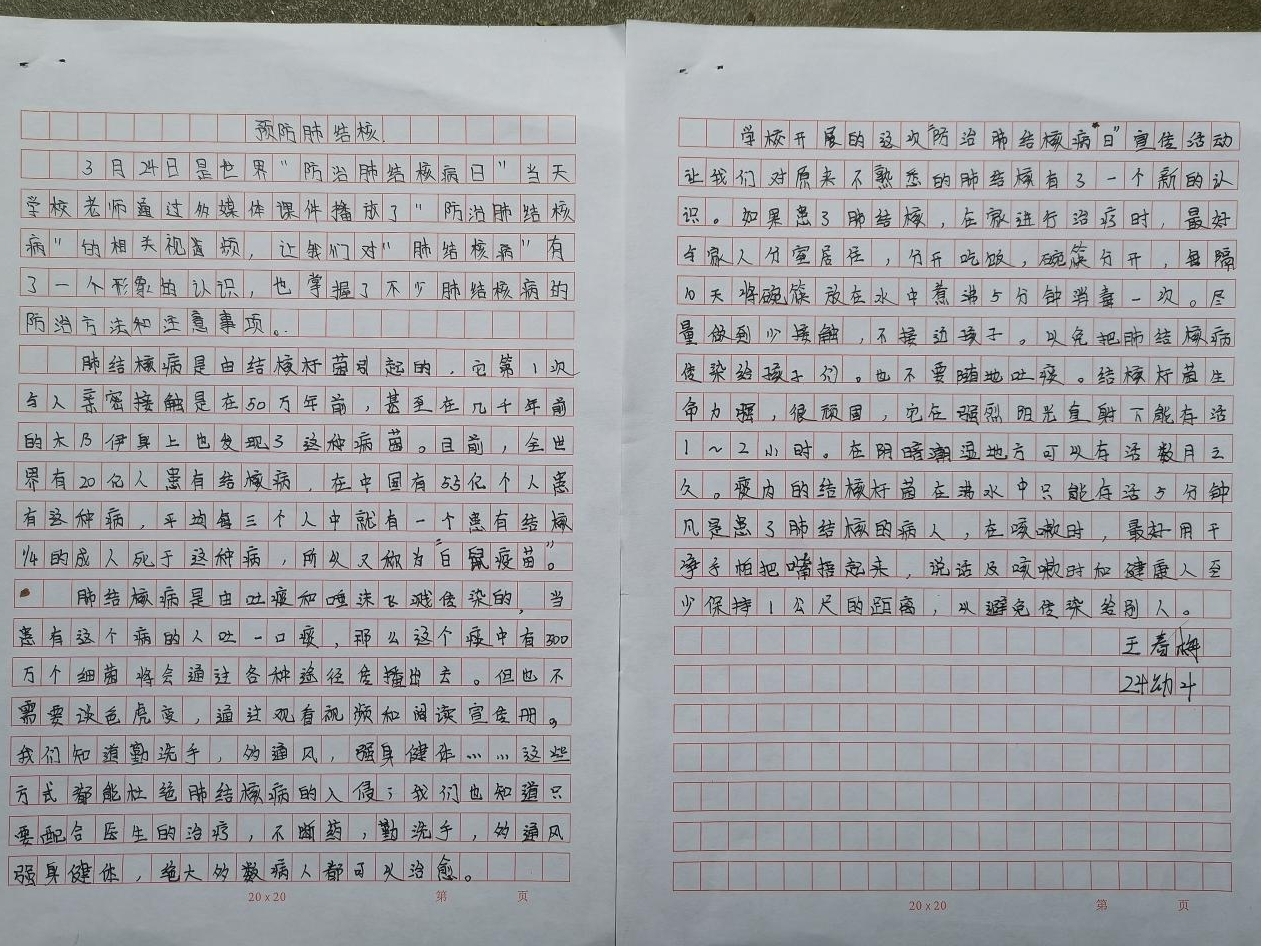 预防肺结核.
3月24日是世界"防治肺结核病日"当天
学校老师通过多媒体课件播放了"防治肺结核
病"的相关视频，让我们对"肺结核病"有
了一个形象的认识，也掌握了不少肺结核病的
防治方法和注意事项。
肺结核病是由结核杆菌引起的，它第1次
与人亲密接触是在50万年前，甚至在几千年前
的木乃伊身上也发现了这种病菌。目前，全世
界有20亿人患有结核病，在中国有5.5亿个人患
有这种病，平均每三个人中就有一个患有结核
1/4的成人死于这种病，所以又称为"白鼠疫苗"。
肺结核病是由吐痰和唾沫飞溅传染的，当
患有这个病的人吐一口痰，那么这个痰中有300
万个细菌将会通过各种途径传播出去。但也不
需要谈色虎变，通过观看视频和阅读宣传册。
我们知道勤洗手，多通风，强身健体……这些
方式都能杜绝肺结核病的入侵；我们也知道只
要配合医生的治疗，不断药，勤洗手，多通风
强身健体，绝大多数病人都可以治愈。
学校开展的这次"防治肺结核病"日"宣传活动
让我们对原来不熟悉的肺结核有了一个新的认
识。如果患了肺结核，在家进行治疗时，最好
与家人分室居住，分开吃饭，碗筷分开，每隔
10天将碗筷放在水中煮沸5分钟消毒一次。尽
量做到少接触，不接近孩子。以免把肺结核病
传染给孩子们。也不要随地吐痰。结核杆菌生
命力强，很顽固，它在强烈阳光直射下能存活
1～2小时。在阴暗潮湿地方可以存活数月之
久。痰内的结核杆菌在沸水中只能存活5分钟
凡是患了肺结核的病人，在咳嗽时，最好用干
净手帕把嘴捂起来，说话及咳嗽时和健康人至
少保持1公尺的距离，以避免传染给别人。
王春梅
24幼4
20x20 第 页
20x20 第 页